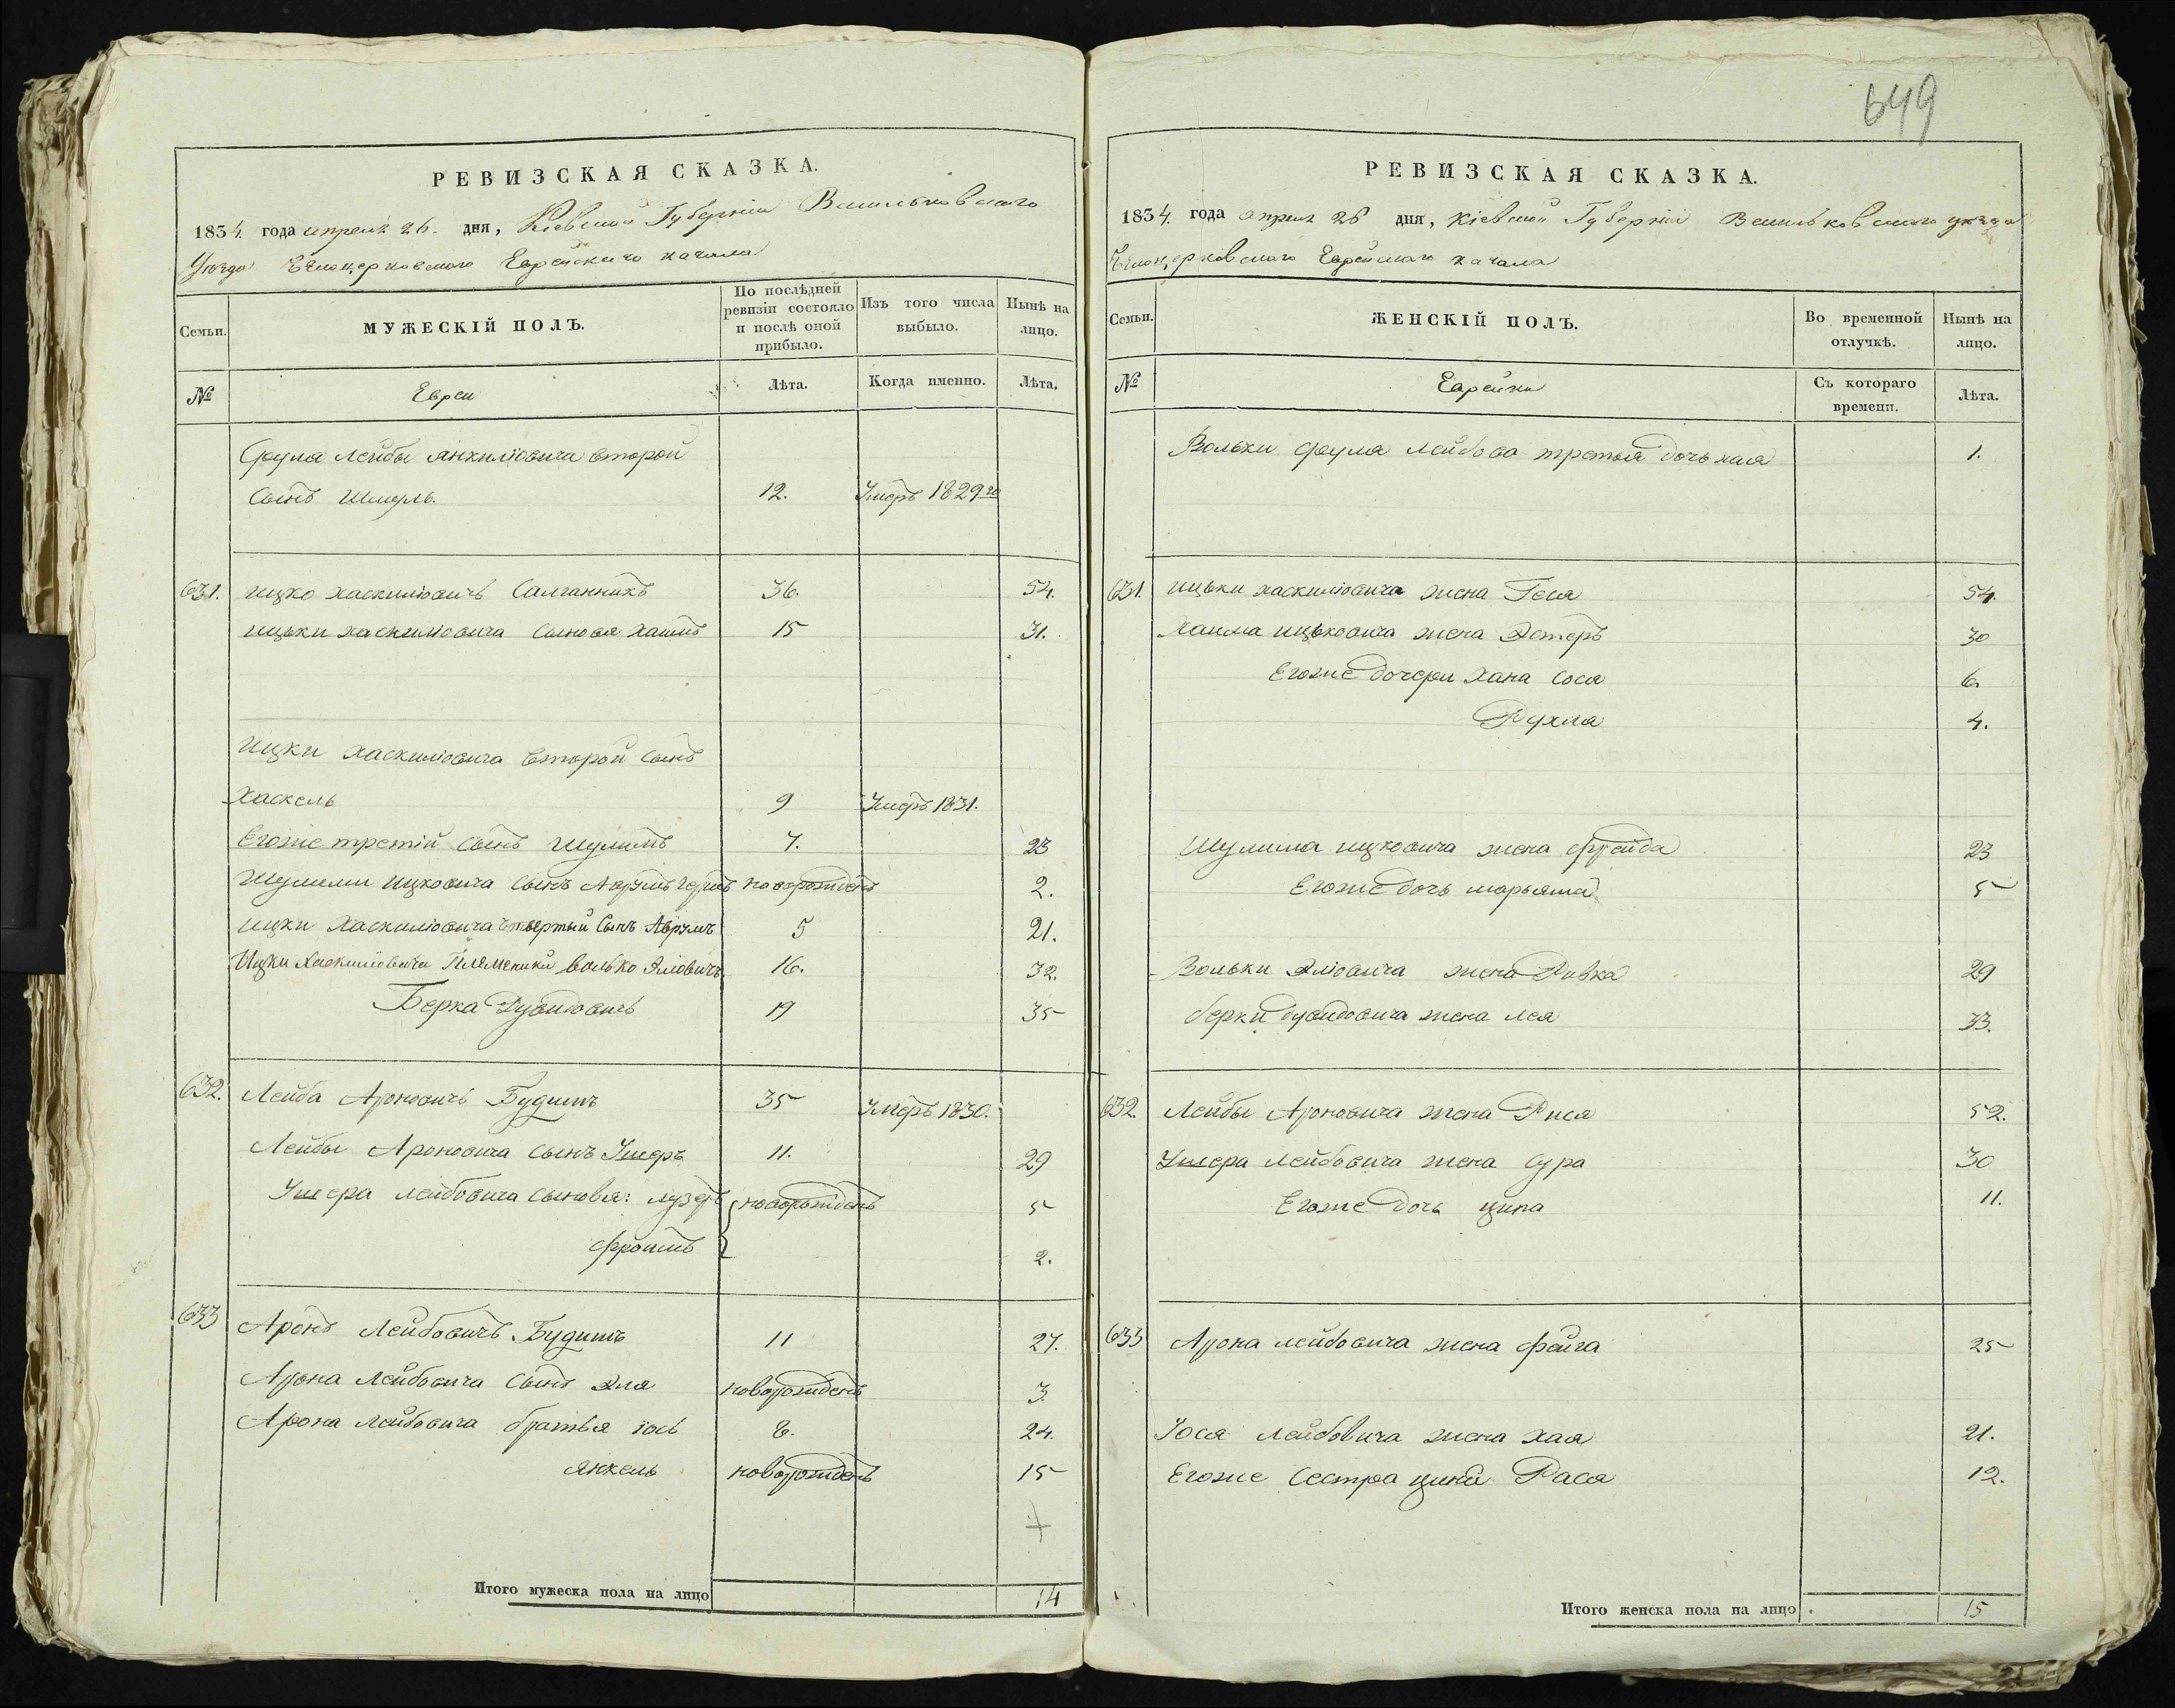 РЕВИЗСКАЯ СКАЗКА.
1834. года апреля 26. дня, Кіевской Губерніи Васильковскаго
Уѣзда Бѣлоцерковскаго Еврейскаго кагала
Семьи.
МУЖЕСКІЙ ПОЛЪ.
По послѣдней ревизіи состояло и послѣ оной прибыло.
Изъ того числа выбыло.
Нынѣ на лицо.
№
Евреи
Лѣта.
Когда именно.
Лѣта.
Сруля Лейбы Янкиліовича второй
Сынъ Шмерль. 12. Умеръ 1829го
631. Ицко Хаскиліовичъ Салганникъ 36. 54.
Ицьки Хаскиліовича Сыновя Хаимъ 15 31.
Ицки Хаскиліовича второй Сынъ
Хаскель 9 Умеръ 1831.
Егоже третій Сынъ Шулимъ 7. 23
Шулими Ицковича Сынъ Аврумъ Гершъ новорожденъ 2.
Ицки Хаскиліовича Четвертый Сынъ Аврумъ 5 21.
Ицки Хаскиліовича Племеники Волько Эліовичъ 16. 32.
Берка Дувидовичъ 19 35
632. Лейба Ароновичъ Будишъ 35 Умеръ 1830.
Лейбы Ароновича Сынъ Ушеръ 11. 29
Ушера Лейбовича Сыновя: Лузеръ новорожденъ 5
Фроимъ 2.
633 Аронъ Лейбовичъ Будишъ 11 27.
Арона Лейбовича Сынъ Эля новорожденъ 3.
Арона Лейбовича братья Іось 8. 24.
Янкель новорожденъ 15
Итого мужеска пола на лицо 14
649
РЕВИЗСКАЯ СКАЗКА.
1834. года апреля 26 дня, Кіевской Губерніи Васильковскаго уѣзда
Бѣлоцерковскаго Еврейскаго кагала
Семьи.
ЖЕНСКІЙ ПОЛЪ.
Во временной отлучкѣ.
Нынѣ на лицо.
№
Еврейки
Съ котораго времени.
Лѣта.
Вольки Сруля Лейбова третья дочь Хая 1.
631. Ицьки Хаскиліовича жена Геся 54.
Хаима Ицьковича жена Эстеръ 30
Егоже дочери Хана Сося 6.
Рухля 4.
Шулима Ицковича жена Фрейда 23
Егоже дочь Марьяма 5
Вольки Эліовича жена Ривка 29
Берки Дувидовича жена Лея 33.
632. Лейбы Ароновича жена Рися 52.
Ушера Лейбовича жена Сура 30
Егоже дочь Ципа 11.
633 Арона Лейбовича жена Фейга 25
Іося Лейбовича жена Хая 21.
Егоже Сестра Рася 12.
Итого женска пола на лицо 15